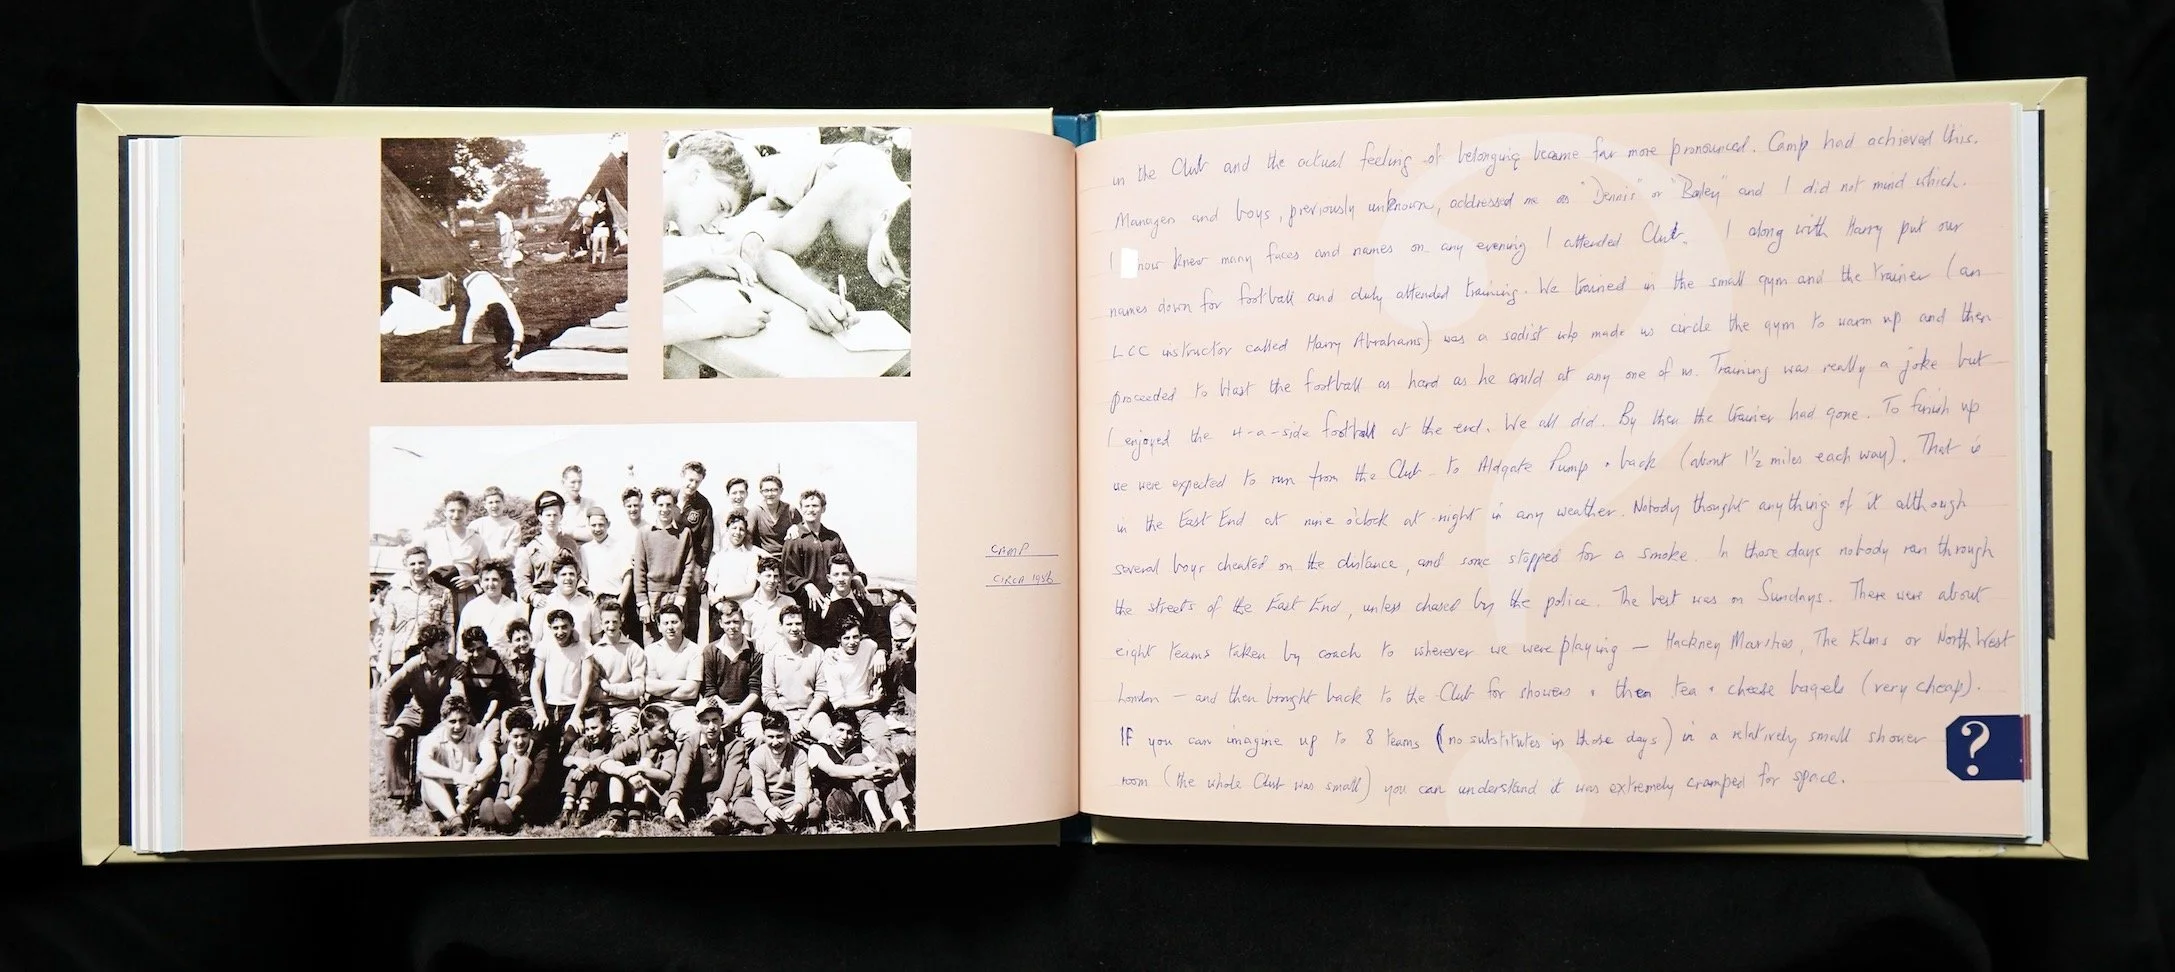 CAMP
CIRCA 1956
in the Club and the actual feeling of belonging became far more pronounced. Camp had achieved this.
Managers and boys, previously unknown, addressed me as "Dennis" or "Bailey" and I did not mind which.
I now knew many faces and names on any evening I attended Club. I along with Harry put our
names down for football and duly attended training. We trained in the small gym and the trainer (an
LCC instructor called Harry Abrahams) was a sadist who made us circle the gym to warm up and then
proceeded to blast the football as hard as he could at any one of us. Training was really a joke but
I enjoyed the 4-a-side football at the end. We all did. By then the trainer had gone. To finish up
we were expected to run from the Club to Aldgate Pump + back (about 1½ miles each way). That is
in the East End at nine o'clock at night in any weather. Nobody thought anything of it although
several boys cheated on the distance, and some stopped for a smoke. In those days nobody ran through
the streets of the East End, unless chased by the police. The best was on Sundays. There were about
eight teams taken by coach to wherever we were playing — Hackney Marshes, The Elms or North West
London — and then brought back to the Club for showers + then tea + cheese bagels (very cheap).
If you can imagine up to 8 teams (no substitutes in those days) in a relatively small shower
room (the whole Club was small) you can understand it was extremely cramped for space.
?